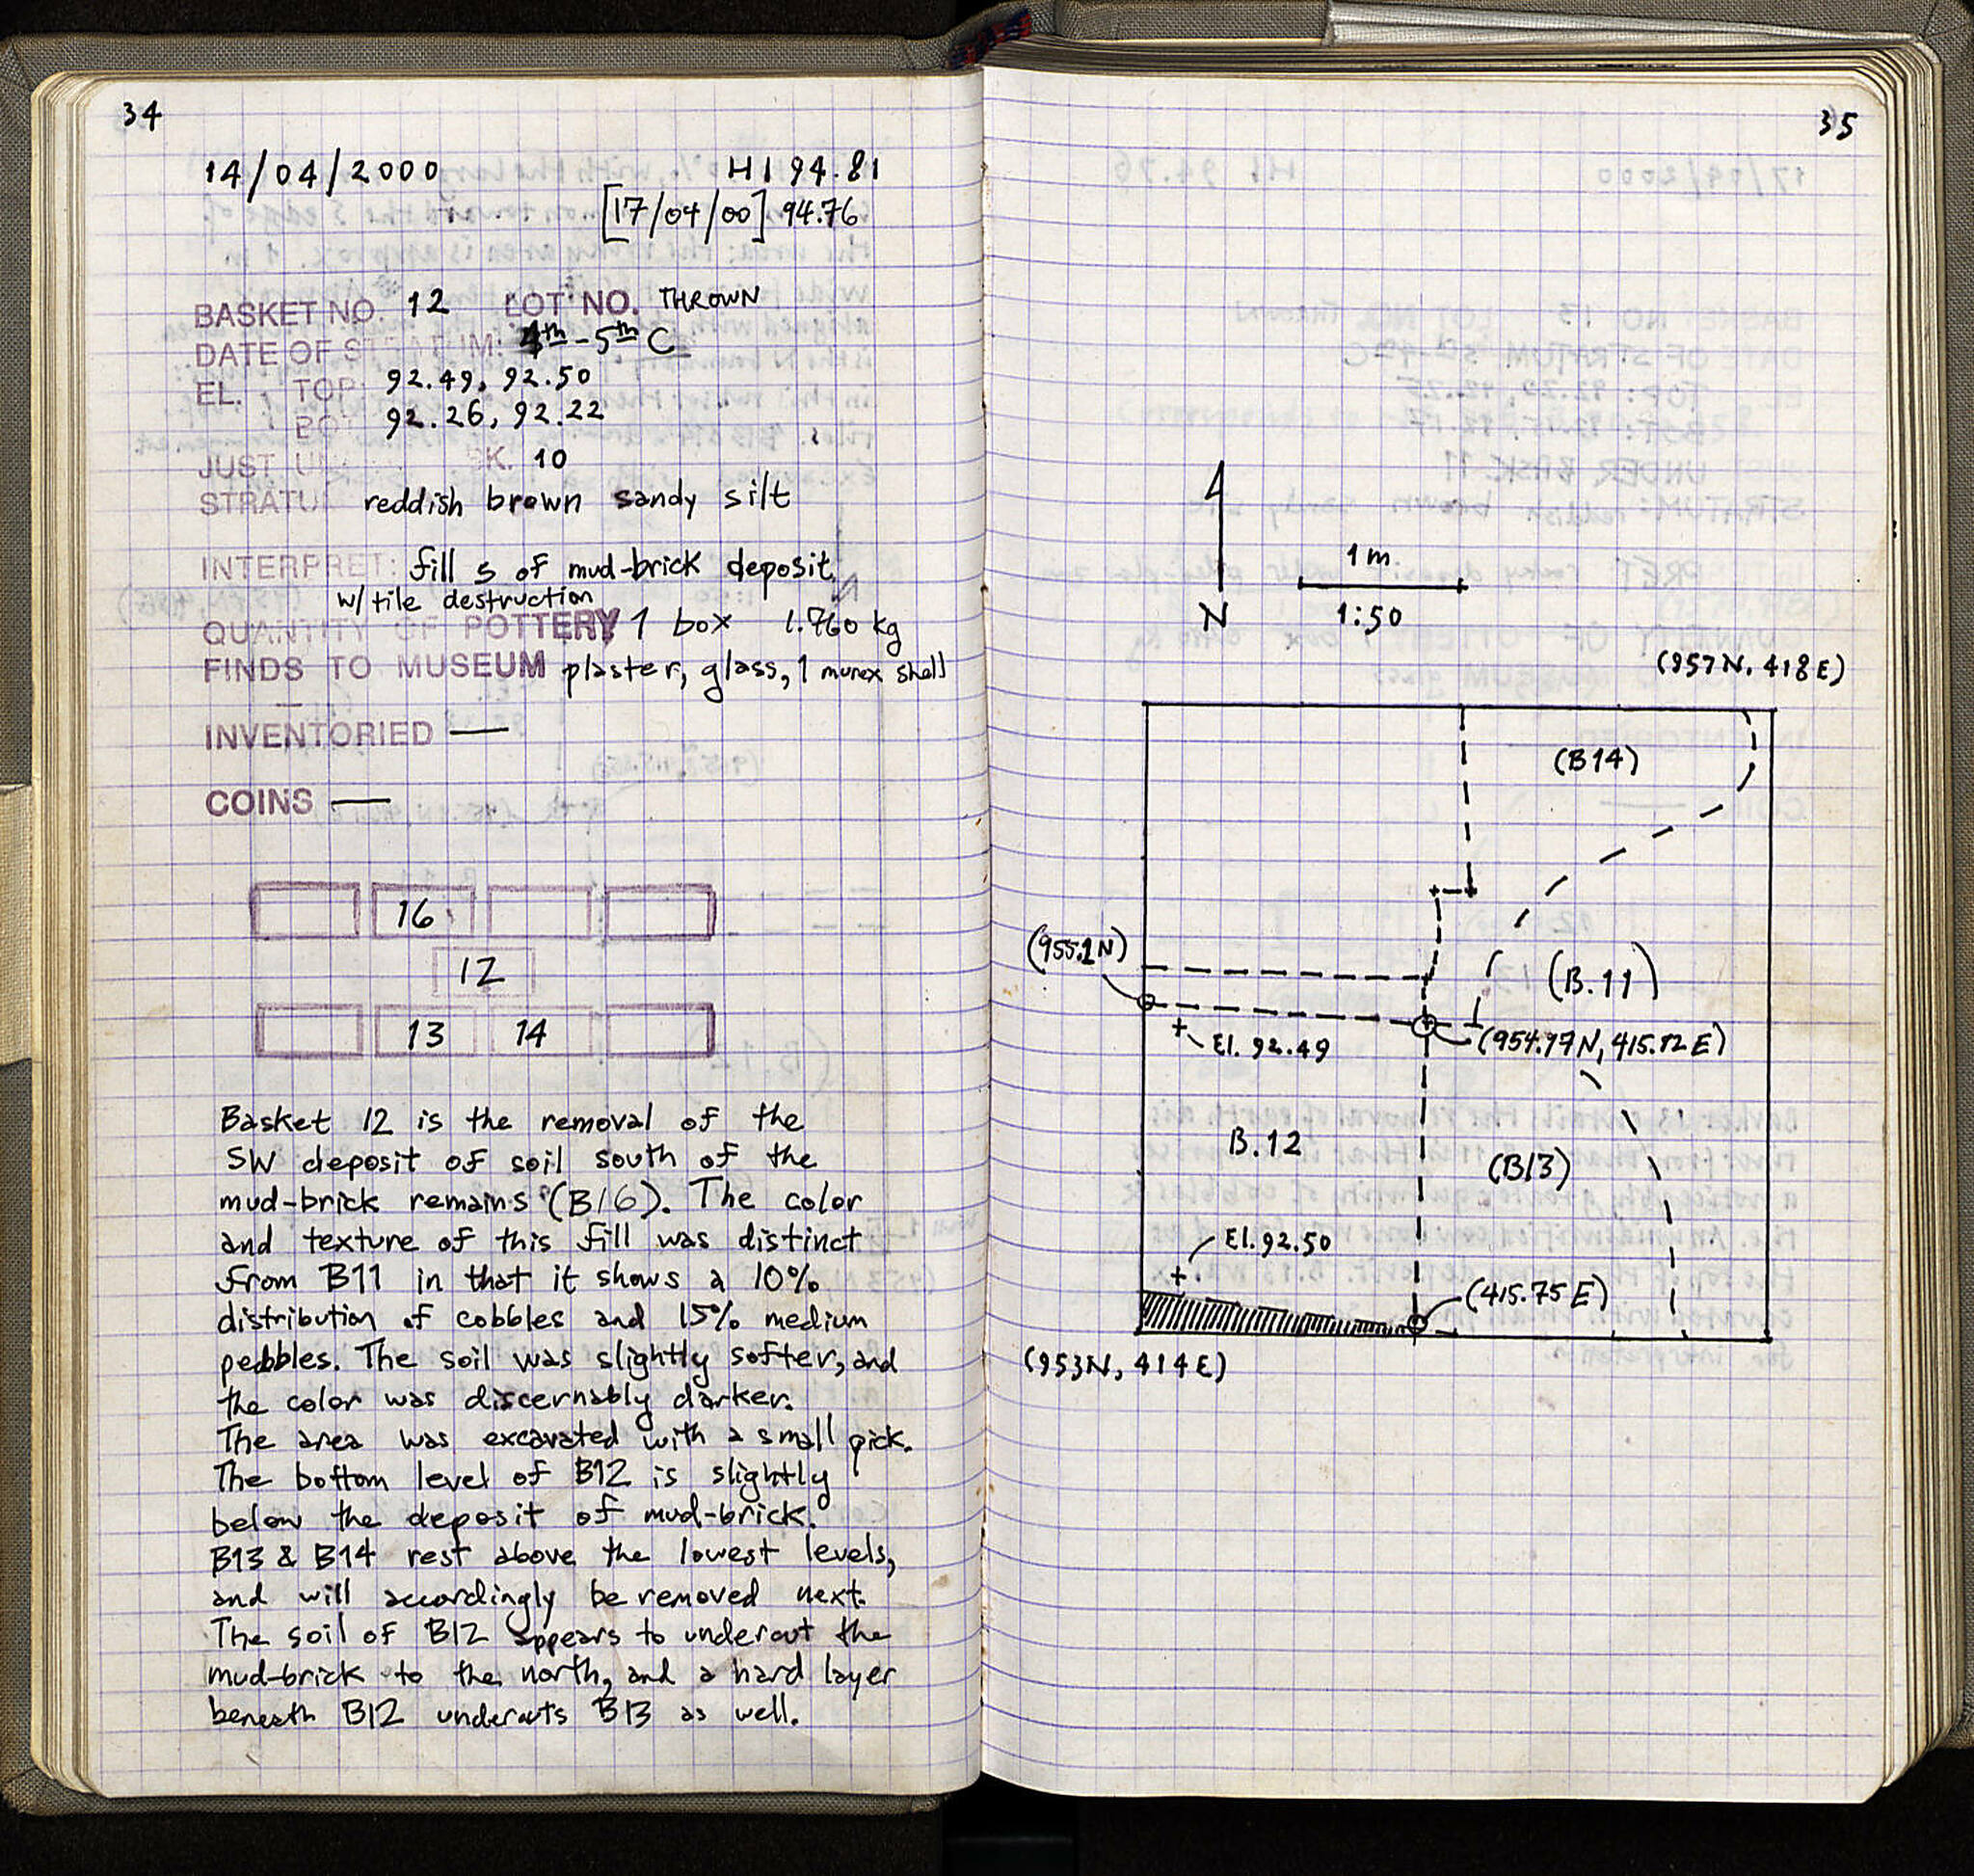 34
14/04/2000 HI 94.81
[17/04/00] 94.76
BASKET NO. 12 LOT NO. THROWN
DATE OF STRATUM: 4th-5th C
EL. TOP: 92.49, 92.50
BOT 92.26, 92.22
JUST UN SK. 10
STRATU reddish brown sandy silt
INTERPRET: fill s of mud-brick deposit
w/ tile destruction
QUANTITY OF POTTERY 1 box 1.760 kg
FINDS TO MUSEUM plaster, glass, 1 murex shell
INVENTORIED —
COINS —
16
12
13 14
Basket 12 is the removal of the
SW deposit of soil south of the
mud-brick remains (B16). The color
and texture of this fill was distinct
from B11 in that it shows a 10%
distribution of cobbles and 15% medium
pebbles. The soil was slightly softer, and
the color was discernably darker.
The area was excavated with a small pick.
The bottom level of B12 is slightly
below the deposit of mud-brick.
B13 & B14 rest above the lowest levels,
and will accordingly be removed next.
The soil of B12 appears to undercut the
mud-brick to the north, and a hard layer
beneath B12 undercuts B13 as well.
35
1m
N 1:50
(957N, 418E)
(B14)
(955.1N)
(B.11)
El. 92.49
(954.97N, 415.82E)
B.12
(B13)
El. 92.50
(415.75E)
(953N, 414E)